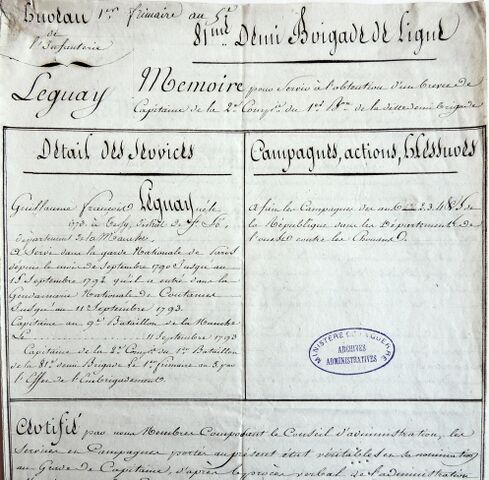 Bureau 1er frimaire an 5e
de
l'Infanterie
81me Demi Brigade de Ligne
Leguay
Memoire pour Servir à l'obtention d'un brevet de
Capitaine de la 2e Compie du 1er Bon de la ditte demi brigade
Détail des Services
Guillaume François Leguay né le
1773 à Tessy, district de St Lô,
département de la Manche.
A Servi dans la garde Nationale de
depuis le mois de Septembre 1790 Jusqu'au
15 Septembre 1792 qu'il est entré dans la
Gendarmerie Nationale de Coutances
Jusqu'au 11 Septembre 1793.
Capitaine au 9e Bataillon de la Manche
Le 11 Septembre 1793
Capitaine de la 2e Compie du 1er Bataillon
de la 81e demi Brigade Le 1er frimaire an 5, par
l'Effet de l'Embrigadement.
Campagnes, actions, blessures
A fait les Campagnes des ans 2.3.4 & 5 de
la République dans les Départements de
l'ouest contre les Chouans.
MINISTERE DE LA GUERRE
ARCHIVES
ADMINISTRATIVES
Certifié par nous Membres Composant le Conseil d'administration, les
Services et Campagnes portés au présent état véritables et sa nomination
au Grade de Capitaine, d'après le procès verbal de l'administration